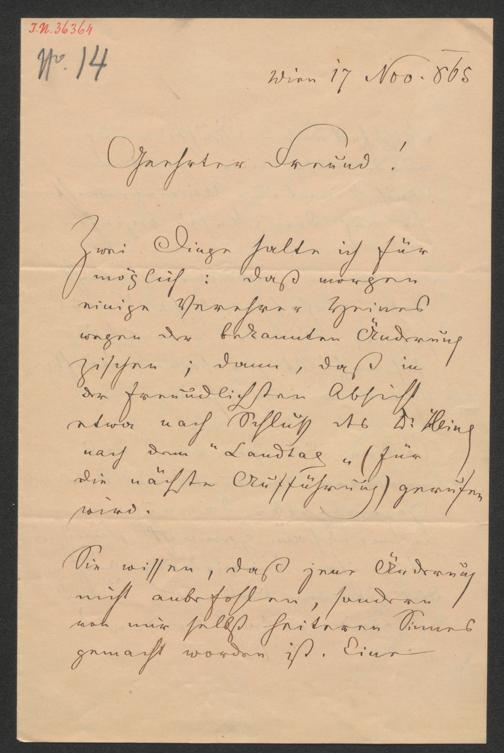 I.N. 36364
No. 14
Wien 17 Nov. 865
Geehrter Freund!
Zwei Dinge halte ich für
möglich: daß morgen
einige Verehrer Heines
wegen der bekannten Änderung
zischen; dann, daß in
der freundlichsten Absicht
etwa nach Schluß des
nach dem "Landtag" (für
die nächste Aufführung) gerufen
wird.
Sie wissen, daß jene Änderung
nicht anbefohlen, sondern
von mir selbst heiteren Sinnes
gemacht worden ist. Eine